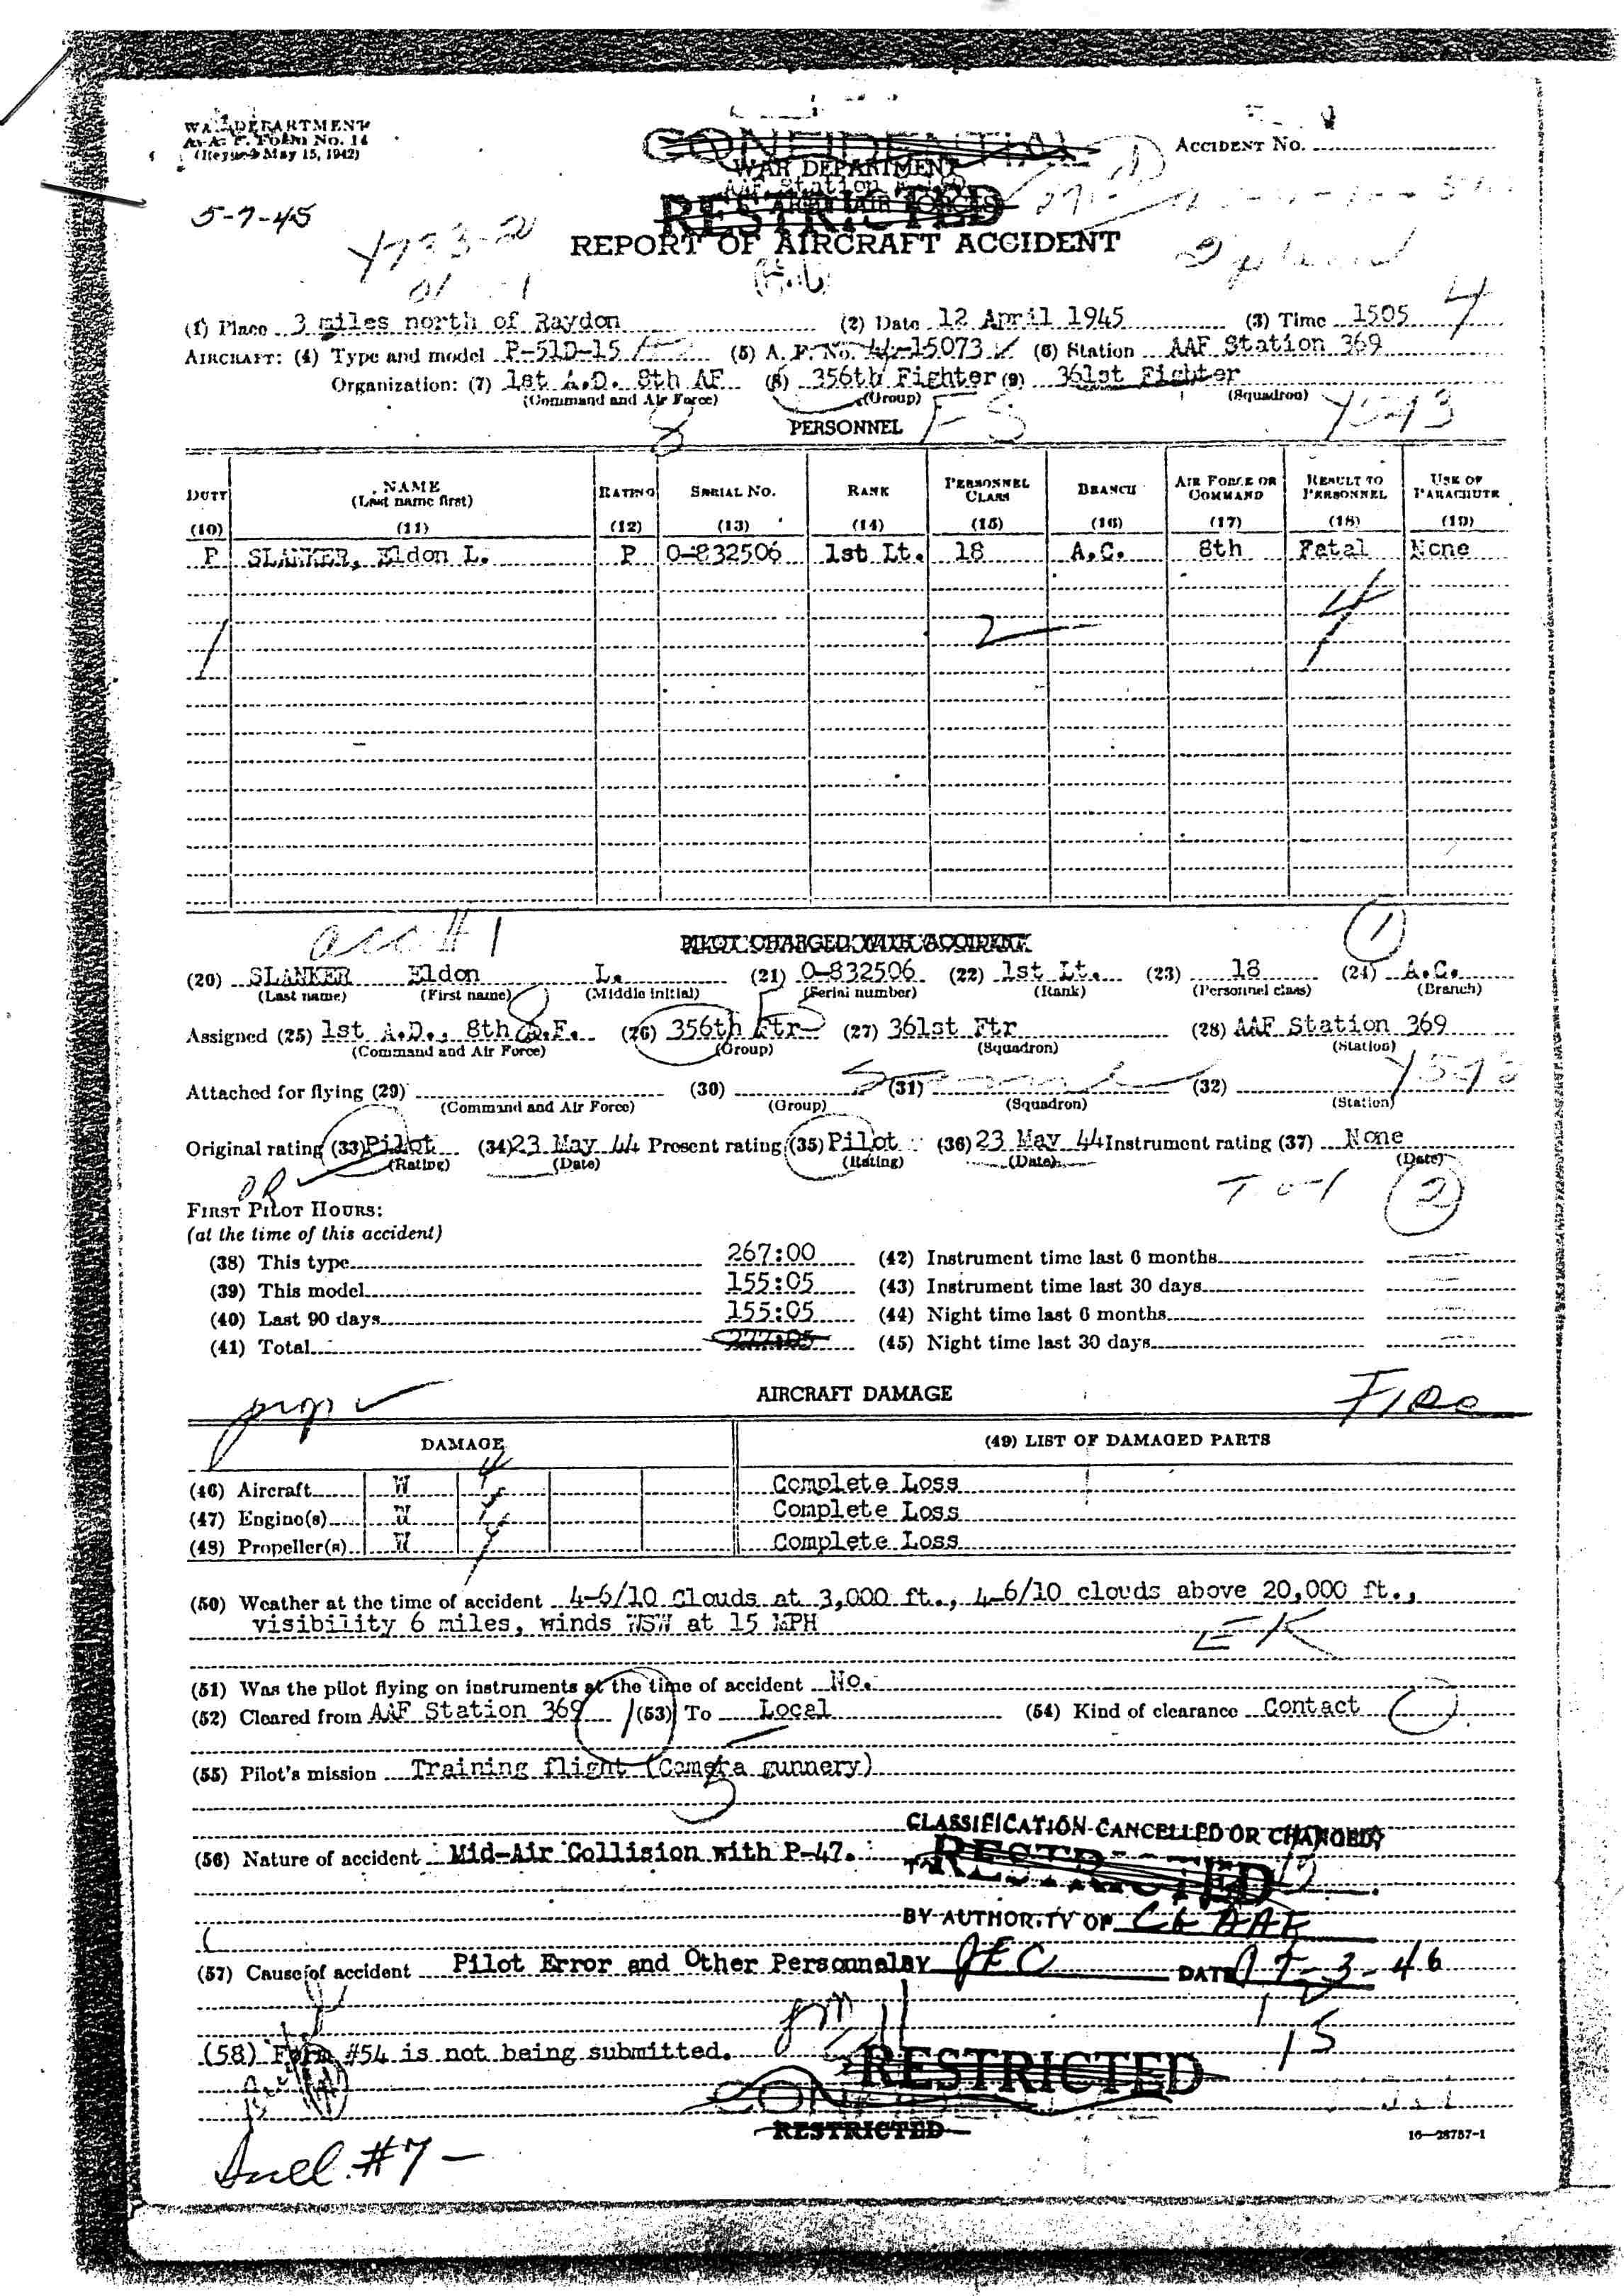 WAR DEPARTMENT
A. A. F. FORM No. 14
(Revised May 15, 1942)
ACCIDENT No.
CONFIDENTIAL
WAR DEPARTMENT
AAF Station
ARMY AIR FORCES
RESTRICTED
5-7-45
REPORT OF AIRCRAFT ACCIDENT
(1) Place 3 miles north of Raydon (2) Date 12 April 1945 (3) Time 1505
AIRCRAFT: (4) Type and model P-51D-15 (5) A. F. No. 44-15073 (6) Station AAF Station 369
Organization: (7) 1st A.D. 8th AF (8) 356th Fighter (9) 361st Fighter
(Command and Air Force) (Group) (Squadron)
8 PERSONNEL F S
DUTY NAME (Last name first) RATING SERIAL No. RANK PERSONNEL CLASS BRANCH AIR FORCE OR COMMAND RESULT TO PERSONNEL USE OF PARACHUTE
(10) (11) (12) (13) (14) (15) (16) (17) (18) (19)
P SLANKER, Eldon L. P O-832506 1st Lt. 18 A.C. 8th Fatal None
acc #1
PILOT CHARGED WITH ACCIDENT
1
(20) SLANKER Eldon L. (21) O-832506 (22) 1st Lt. (23) 18 (24) A.C.
(Last name) (First name) (Middle initial) (Serial number) (Rank) (Personnel class) (Branch)
Assigned (25) 1st A.D., 8th A.F. (26) 356th Ftr (27) 361st Ftr (28) AAF Station 369
(Command and Air Force) (Group) (Squadron) (Station)
Attached for flying (29) (30) (31) (32)
(Command and Air Force) (Group) (Squadron) (Station)
Original rating (33) Pilot (34) 23 May 44 Present rating (35) Pilot (36) 23 May 44 Instrument rating (37) None
(Rating) (Date) (Rating) (Date) (Date)
2
FIRST PILOT HOURS:
(at the time of this accident)
(38) This type 267:00 (42) Instrument time last 6 months
(39) This model 155:05 (43) Instrument time last 30 days
(40) Last 90 days 155:05 (44) Night time last 6 months
(41) Total (45) Night time last 30 days
prop AIRCRAFT DAMAGE Fire
DAMAGE (49) LIST OF DAMAGED PARTS
(46) Aircraft W Complete Loss
(47) Engine(s) W Complete Loss
(48) Propeller(s) W Complete Loss
(50) Weather at the time of accident 4-6/10 Clouds at 3,000 ft., 4-6/10 clouds above 20,000 ft.,
visibility 6 miles, winds WSW at 15 MPH
(51) Was the pilot flying on instruments at the time of accident No.
(52) Cleared from AAF Station 369 (53) To Local (54) Kind of clearance Contact
(55) Pilot's mission Training flight (Camera gunnery)
CLASSIFICATION CANCELLED OR CHANGED
(56) Nature of accident Mid-Air Collision with P-47.
TO RESTRICTED
BY AUTHORITY OF CG AAF
(57) Cause of accident Pilot Error and Other Personnel BY JEC DATE
(58) Form #54 is not being submitted.
15
RESTRICTED
RESTRICTED
16—28757-1
Incl. #7 -